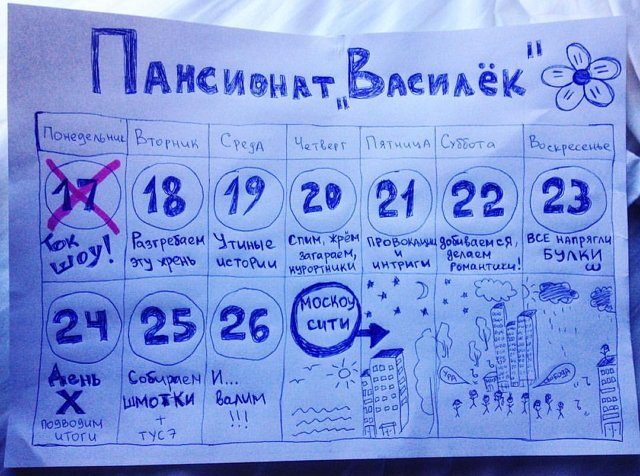 Пансионат „Василёк"
Понедельник Вторник Среда Четверг Пятница Суббота Воскресенье
17
Ток
шоу!
18
Разгребаем
эту хрень
19
Утиные
истории
20
Спим, жрём
загораем,
курортники
21
Провокации
и
интриги
22
добиваемся,
делаем
романтики!
23
Все напрягли
булки
24
День
X
подводим
итоги
25
Собираем
шмотки
+
26
И...
валим
!!!
Москоу
сити
Ура